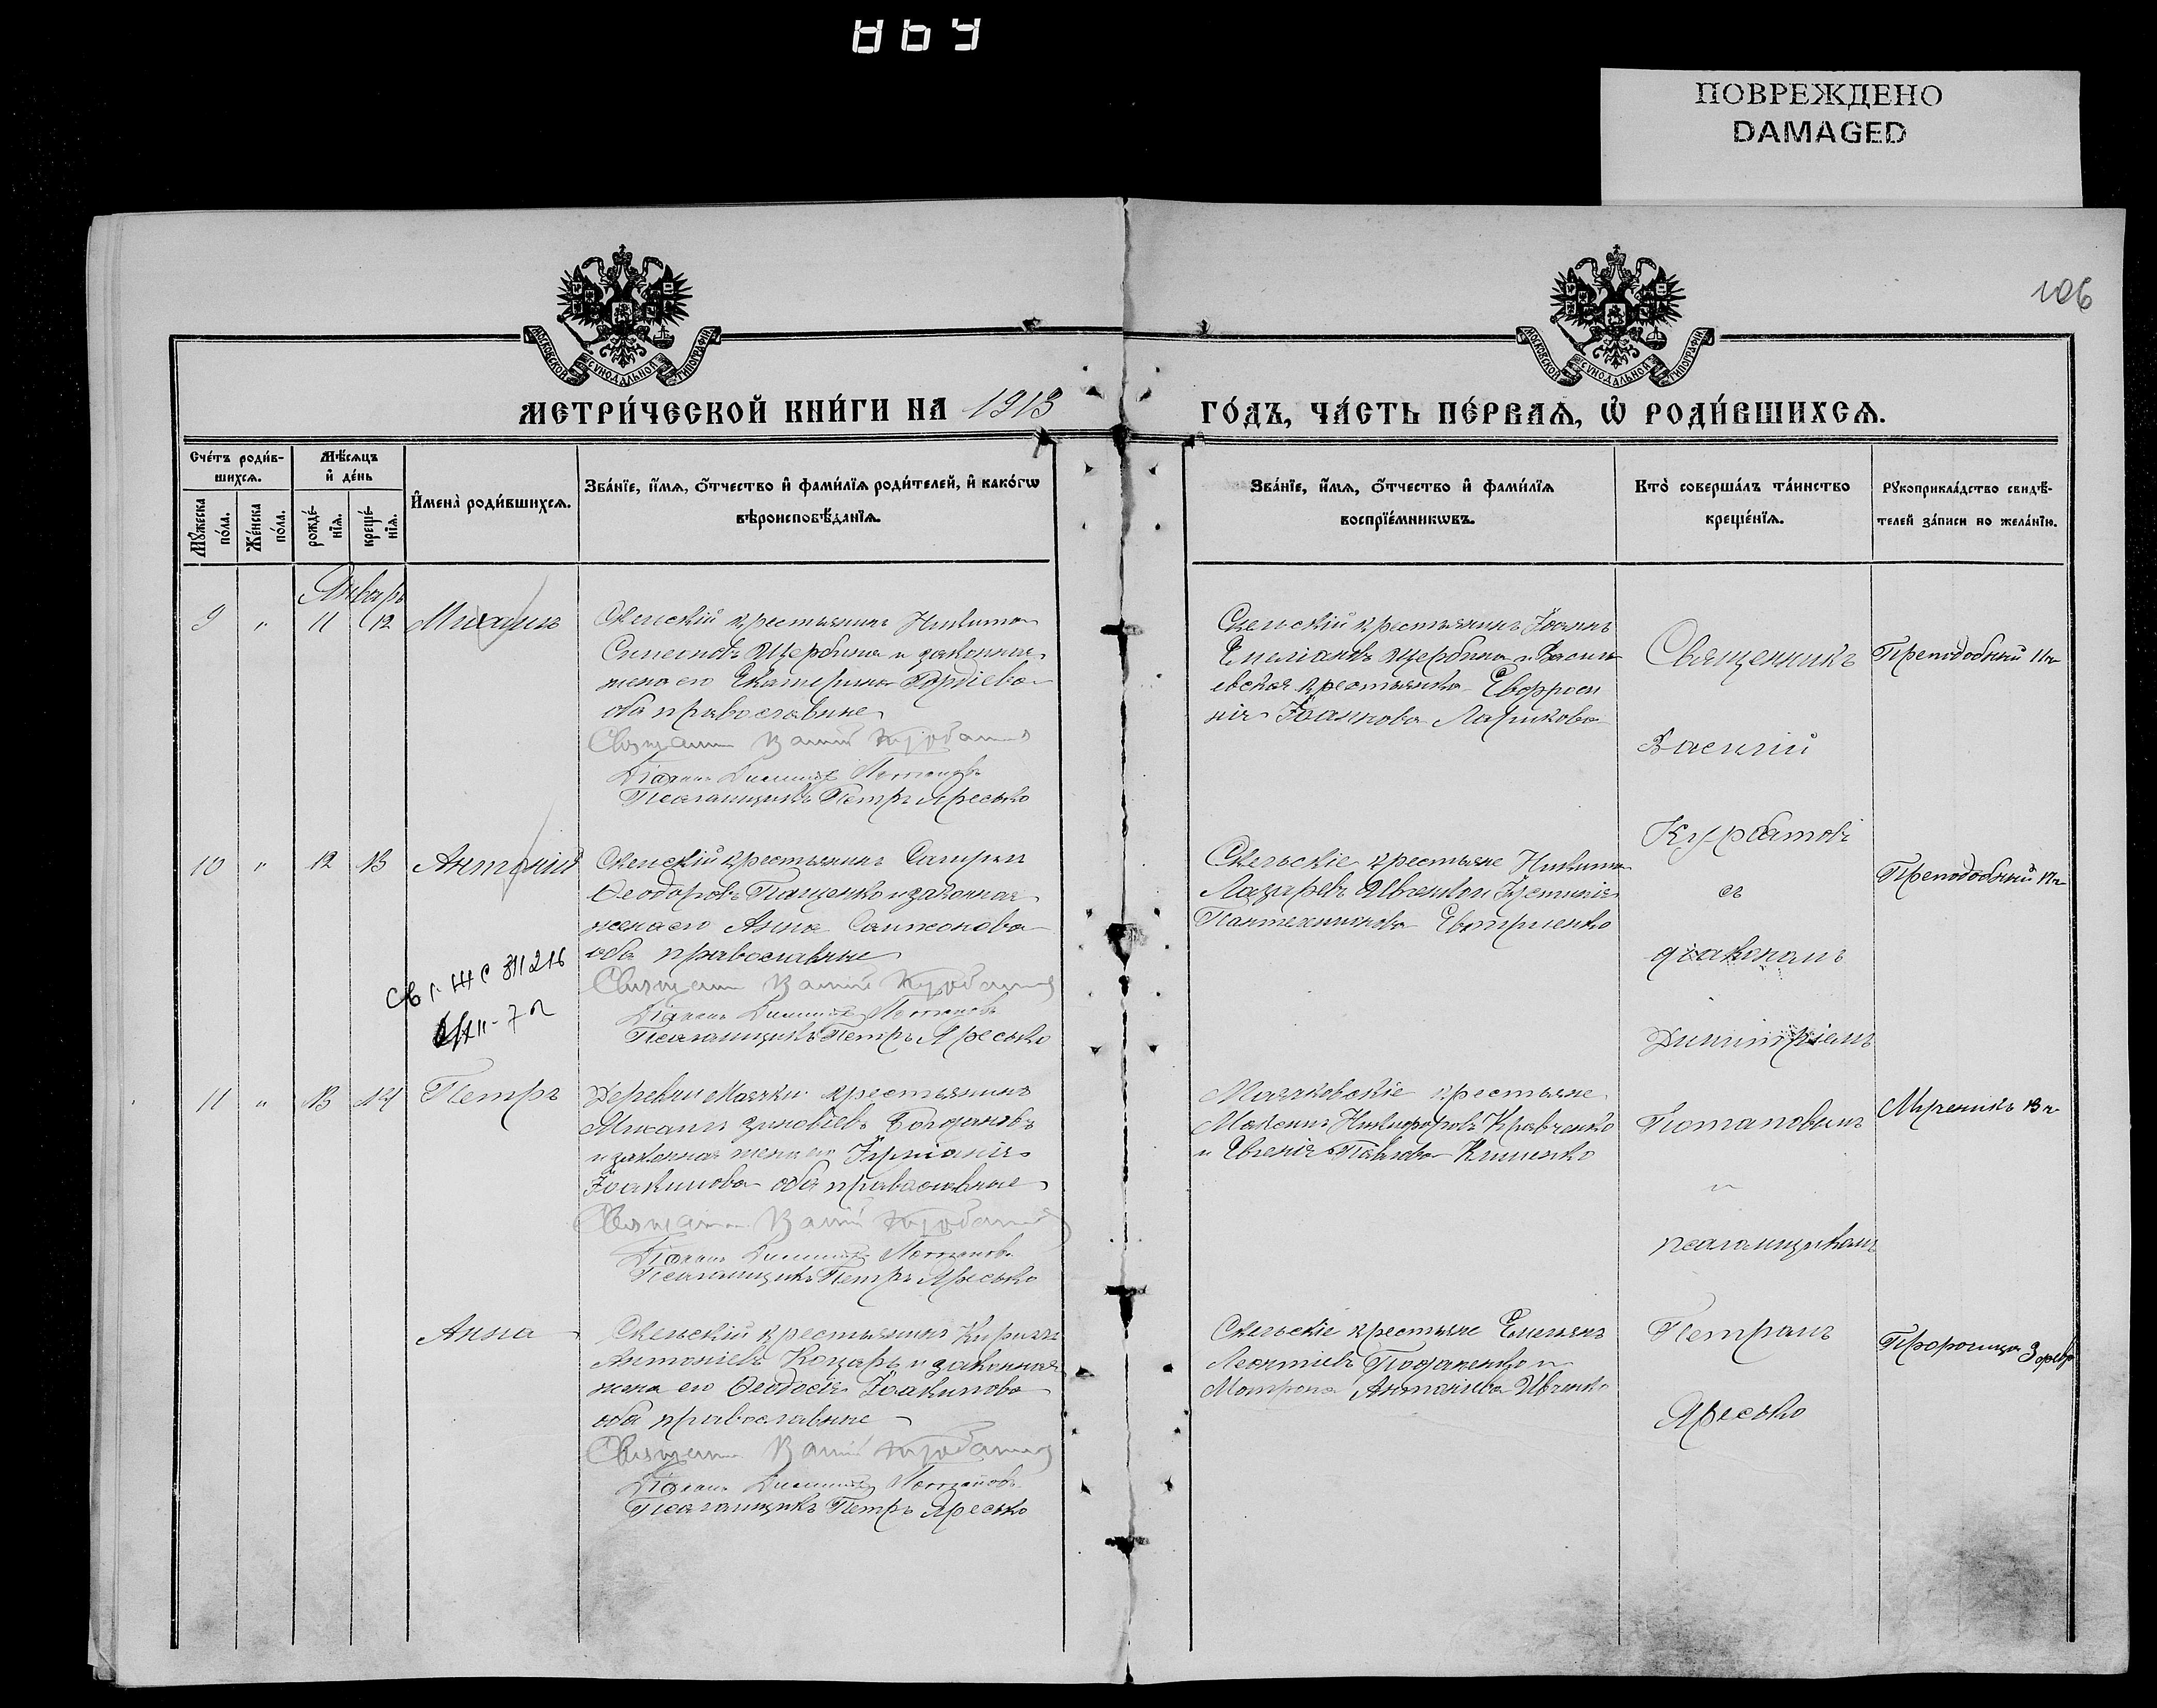 ПОВРЕЖДЕНО
DAMAGED
106
МОСКОВСКОЙ СѴНОДАЛЬНОЙ ТИПОГРАФІИ
МОСКОВСКОЙ СѴНОДАЛЬНОЙ ТИПОГРАФІИ
МЕТРИ́ЧЕСКОЙ КНИ́ГИ НА 1913
ГО́ДЪ, ЧА́СТЬ ПЕ́РВАѦ, Ѡ҆ РОДИ́ВШИХСѦ.
Сче́тъ роди́в-
шихсѧ.
Мꙋ́жеска по́ла.
Же́нска по́ла.
Мѣ́сѧцъ
и҆ де́нь
рожде́-
нїѧ.
креще́-
нїѧ.
И҆мена̀ роди́вшихсѧ.
Зва́нїе, и҆́мѧ, ѻ҆́тчество и҆ фами́лїѧ роди́телей, и҆ како́гѡ
вѣроисповѣ́данїѧ.
Зва́нїе, и҆́мѧ, ѻ҆́тчество и҆ фами́лїѧ
воспрїе́мникѡвъ.
Кто̀ соверша́лъ та́инство
креще́нїѧ.
Рꙋкоприкла́дство свидѣ́-
телей за́писи по жела́нїю.
Январь
9 " 11 12 Михаилъ
Скельскій крестьянинъ Никита
Симеоновъ Щербина и законная
жена его Екатерина Гордіева
оба православные
Священн Курбатовъ
Діаконъ Димитрій Потаповъ
Псаломщикъ Петръ Яресько
Скельскій крестьянинъ Іоаннъ
Емеліановъ Щербина и Васили
евская крестьянка Евфроси
нія Іоаннова Ларикова
Священникъ
Василій
Курбатовъ
съ
діакономъ
Димитріемъ
Потаповымъ
и
псаломщикомъ
Петромъ
Яресько
Преподобный 11
10 " 12 13 Антоній
Скельскій крестьянинъ
Ѳеодоровъ Пащенко и законная
жена его Анна Сампсонова
оба православные
Священн Курбатовъ
Діаконъ Димитрій Потаповъ
Псаломщикъ Петръ Яресько
Скельскіе крестьяне Никита
Лазаревъ Ивченко и
Пантелеимонова
Преподобный 17
11 " 13 14 Петръ
Деревни Маячки крестьянинъ
Михаилъ Зиновіевъ Богдановъ
и законная жена его
Іоакимова оба православные
Священн Курбатовъ
Діаконъ Димитрій Потаповъ
Псаломщикъ Петръ Яресько
Маячковскіе крестьяне
Никифоровъ Кравченко
и Евгенія Павлова Клименко
Мученикъ 13
Анна
Скельскій крестьянинъ Кириллъ
Антоніевъ Коцарь и законная
жена его Ѳеодосія Іоакимова
оба православные
Священн Курбатовъ
Діаконъ Димитрій Потаповъ
Псаломщикъ Петръ Яресько
Скельскіе крестьяне Емельянъ
Леонтіевъ и
Матрона Антоніева Ивченко
Пророчица 3 февр